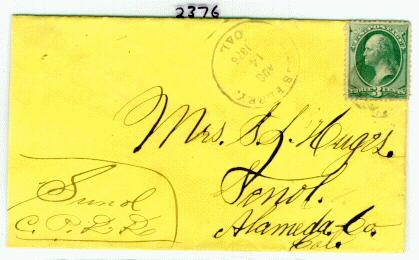 2376
CAL.
AUG
14
Mrs. S. L. Hugts.
Sonol.
Alameda. Co.
Cal.
Sunol
C. P. R. R.
U.S. POSTAGE
THREE 3 CENTS